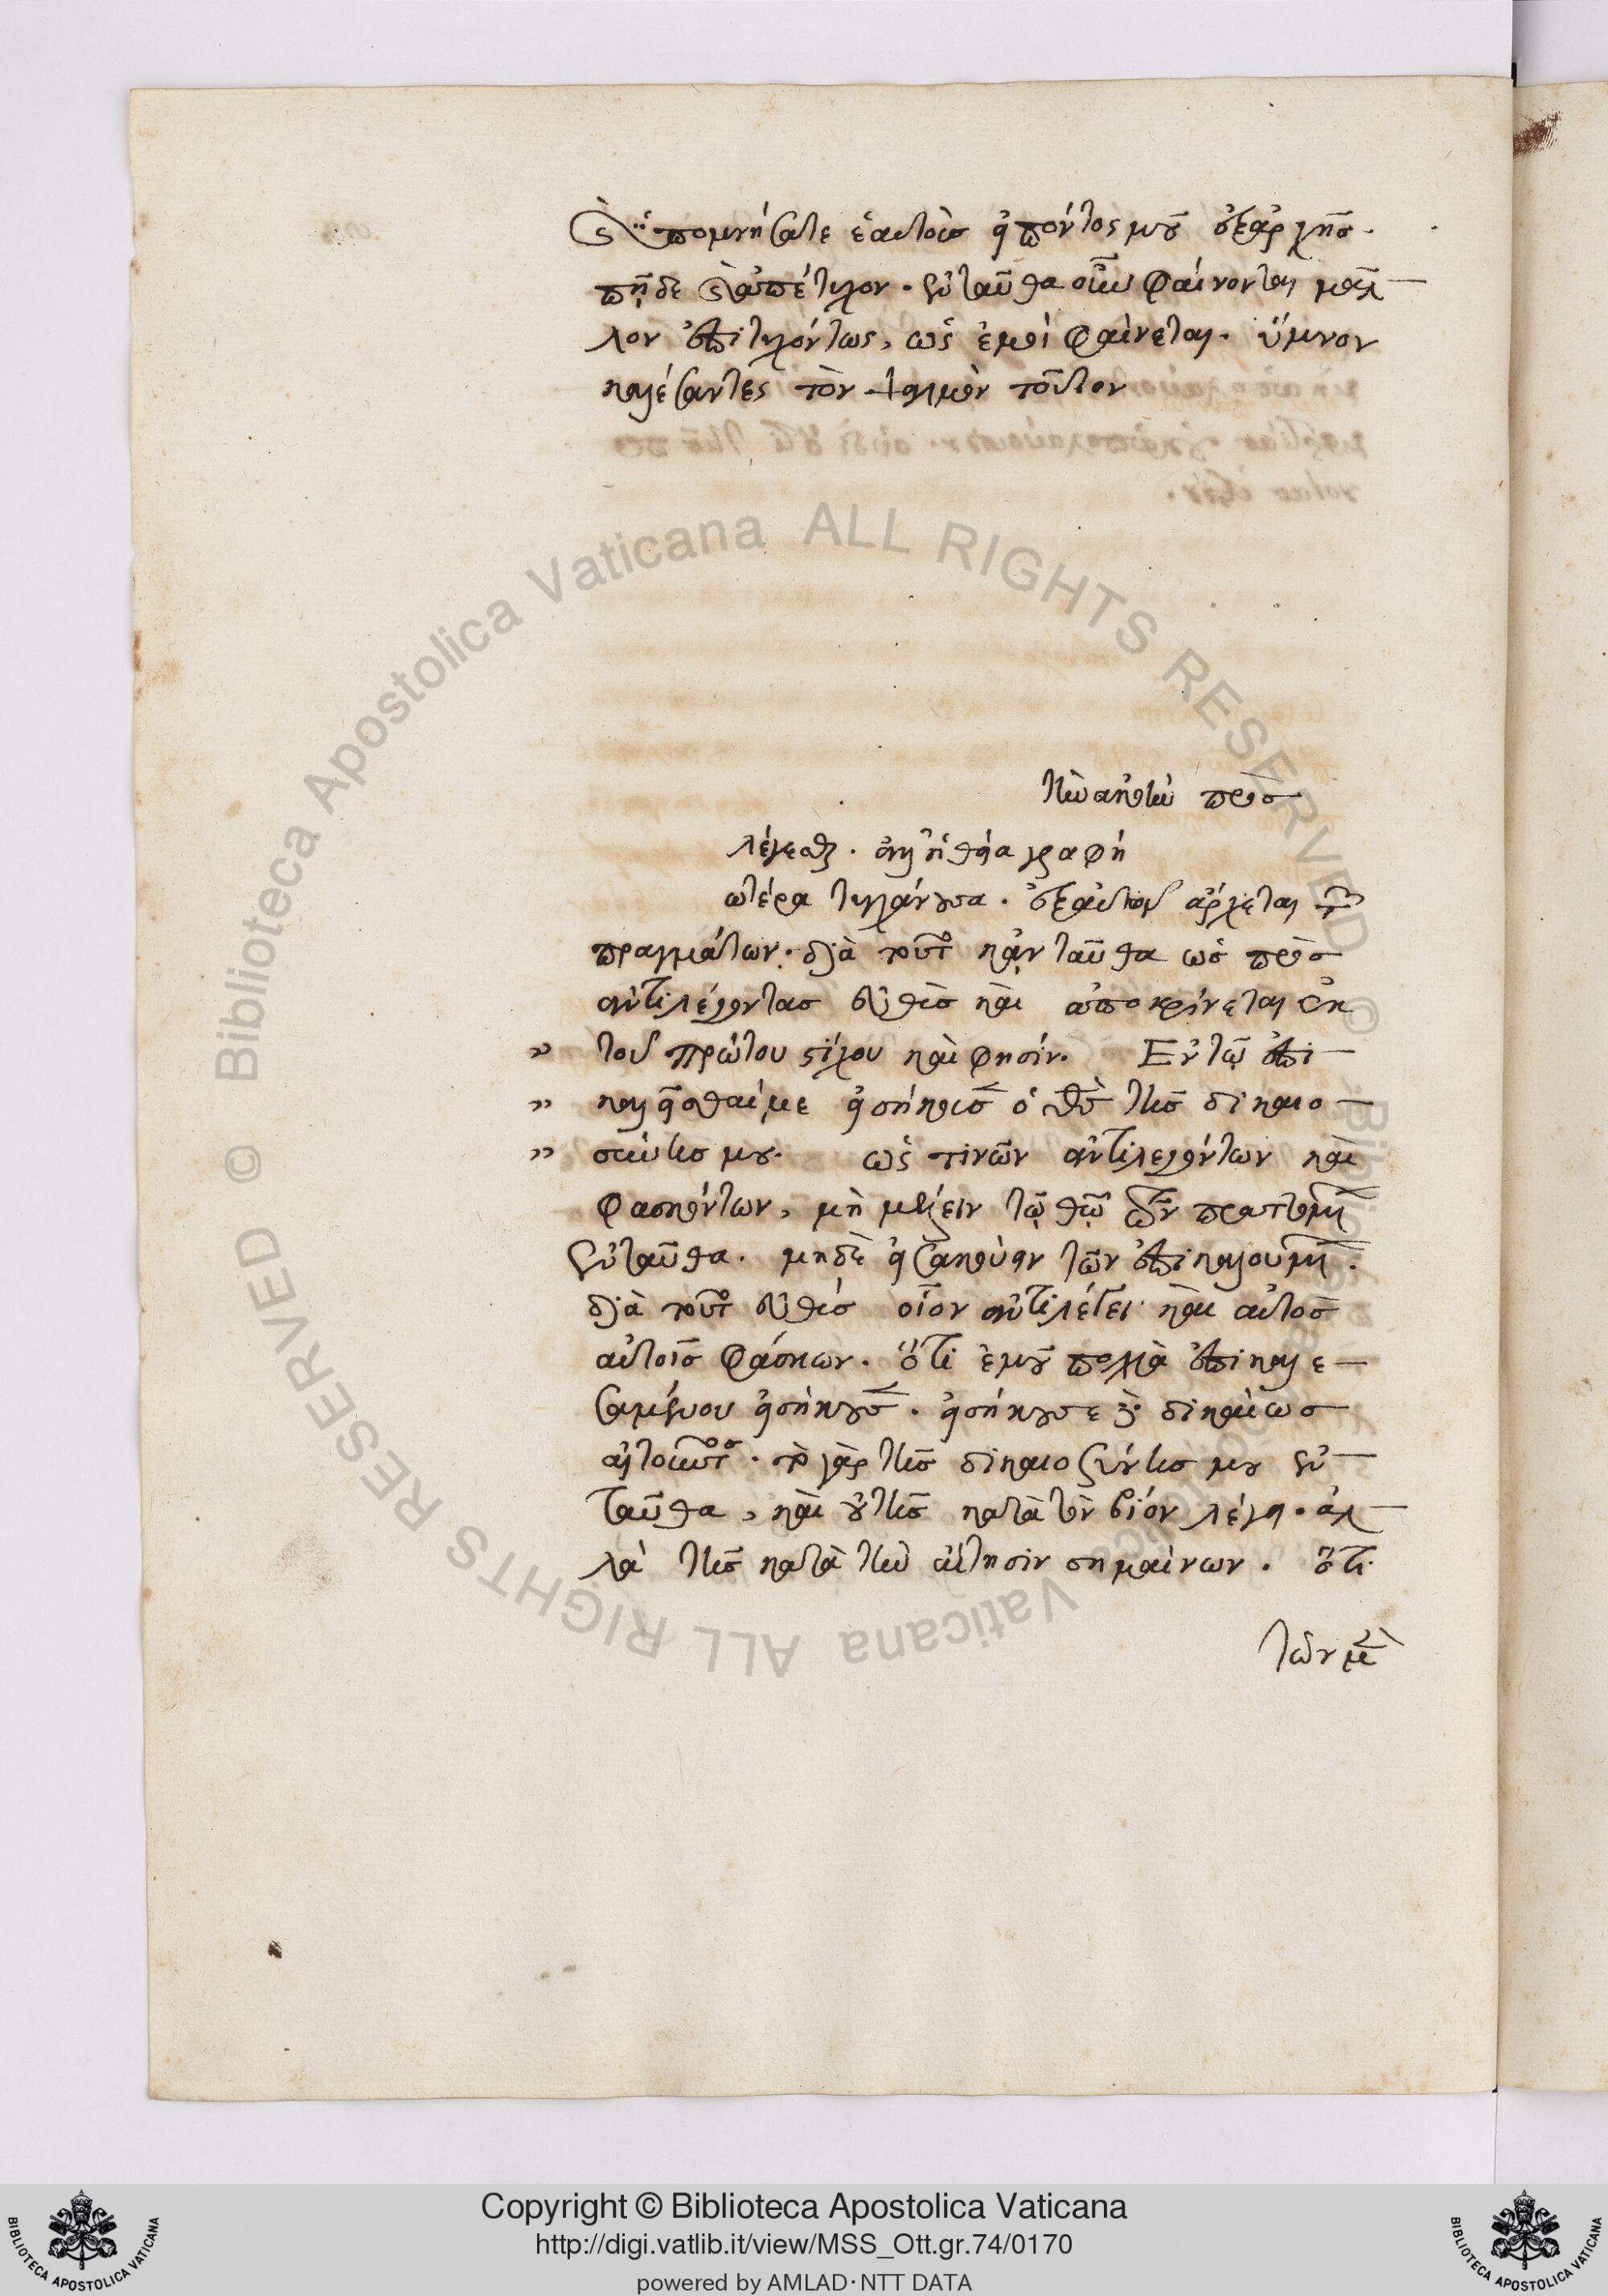 ὑπομνήσατε ἑαυτοὺς εἰπόντος μου ἐξαρχῆς.
πῆ δὲ ἀπέτυχον. ἐνταῦθα οὖν φαίνονται μᾶλ
λον ἐπιτυχόντως, ὡς ἐμοὶ φαίνεται. ὕμνον
καλέσαντες τὸν ψαλμὸν τοῦτον
τὴν ἀκοὴν πρὸς
λέγεσθαι. καὶ ἡ θεία γραφὴ
ωτέρα τυγχάνουσα. ἐξ αὐτῶν ἄρχεται τῶν
πραγμάτων. διὰ τοῦτο κἀνταῦθα ὡς πρὸς
ἀντιλέγοντας εὐθὺς καὶ ἀποκρίνεται ἐκ
τοῦ πρώτου στίχου καὶ φησίν. Ἐν τῷ ἐπι
καλεῖσθαί με εἰσήκουσεν ὁ θεὸς τῆς δικαιο
σύνης μου. ὡς τινῶν ἀντιλεγόντων καὶ
φασκόντων, μὴ μέλειν τῷ θεῷ τῶν πραττομένων
ἐνταῦθα. μηδὲ εἰσακούειν τῶν ἐπικαλουμένων.
διὰ τοῦτο εὐθὺς οἷον ἀντιλέγει καὶ αὐτὸς
αὐτοῖς φάσκων. ὅτι ἐμοῦ πολλὰ ἐπικαλε
σαμένου εἰσήκουσεν. εἰσήκουσε δὲ δικαίως
αἰτοῦντος. τὸ γὰρ τῆς δικαιοσύνης μου ἐν
ταῦθα, καὶ οὐ τῆς κατὰ τὸν βίον λέγει. ἀλ
λὰ τῆς κατὰ τὴν αἴτησιν σημαίνων. ὅτι
τῶν μὲν
Copyright © Biblioteca Apostolica Vaticana
http://digi.vatlib.it/view/MSS_Ott.gr.74/0170
powered by AMLAD·NTT DATA
BIBLIOTECA APOSTOLICA VATICANA
BIBLIOTECA APOSTOLICA VATICANA
© Biblioteca Apostolica Vaticana ALL RIGHTS RESERVED
© Biblioteca Apostolica Vaticana ALL RIGHTS RESERVED